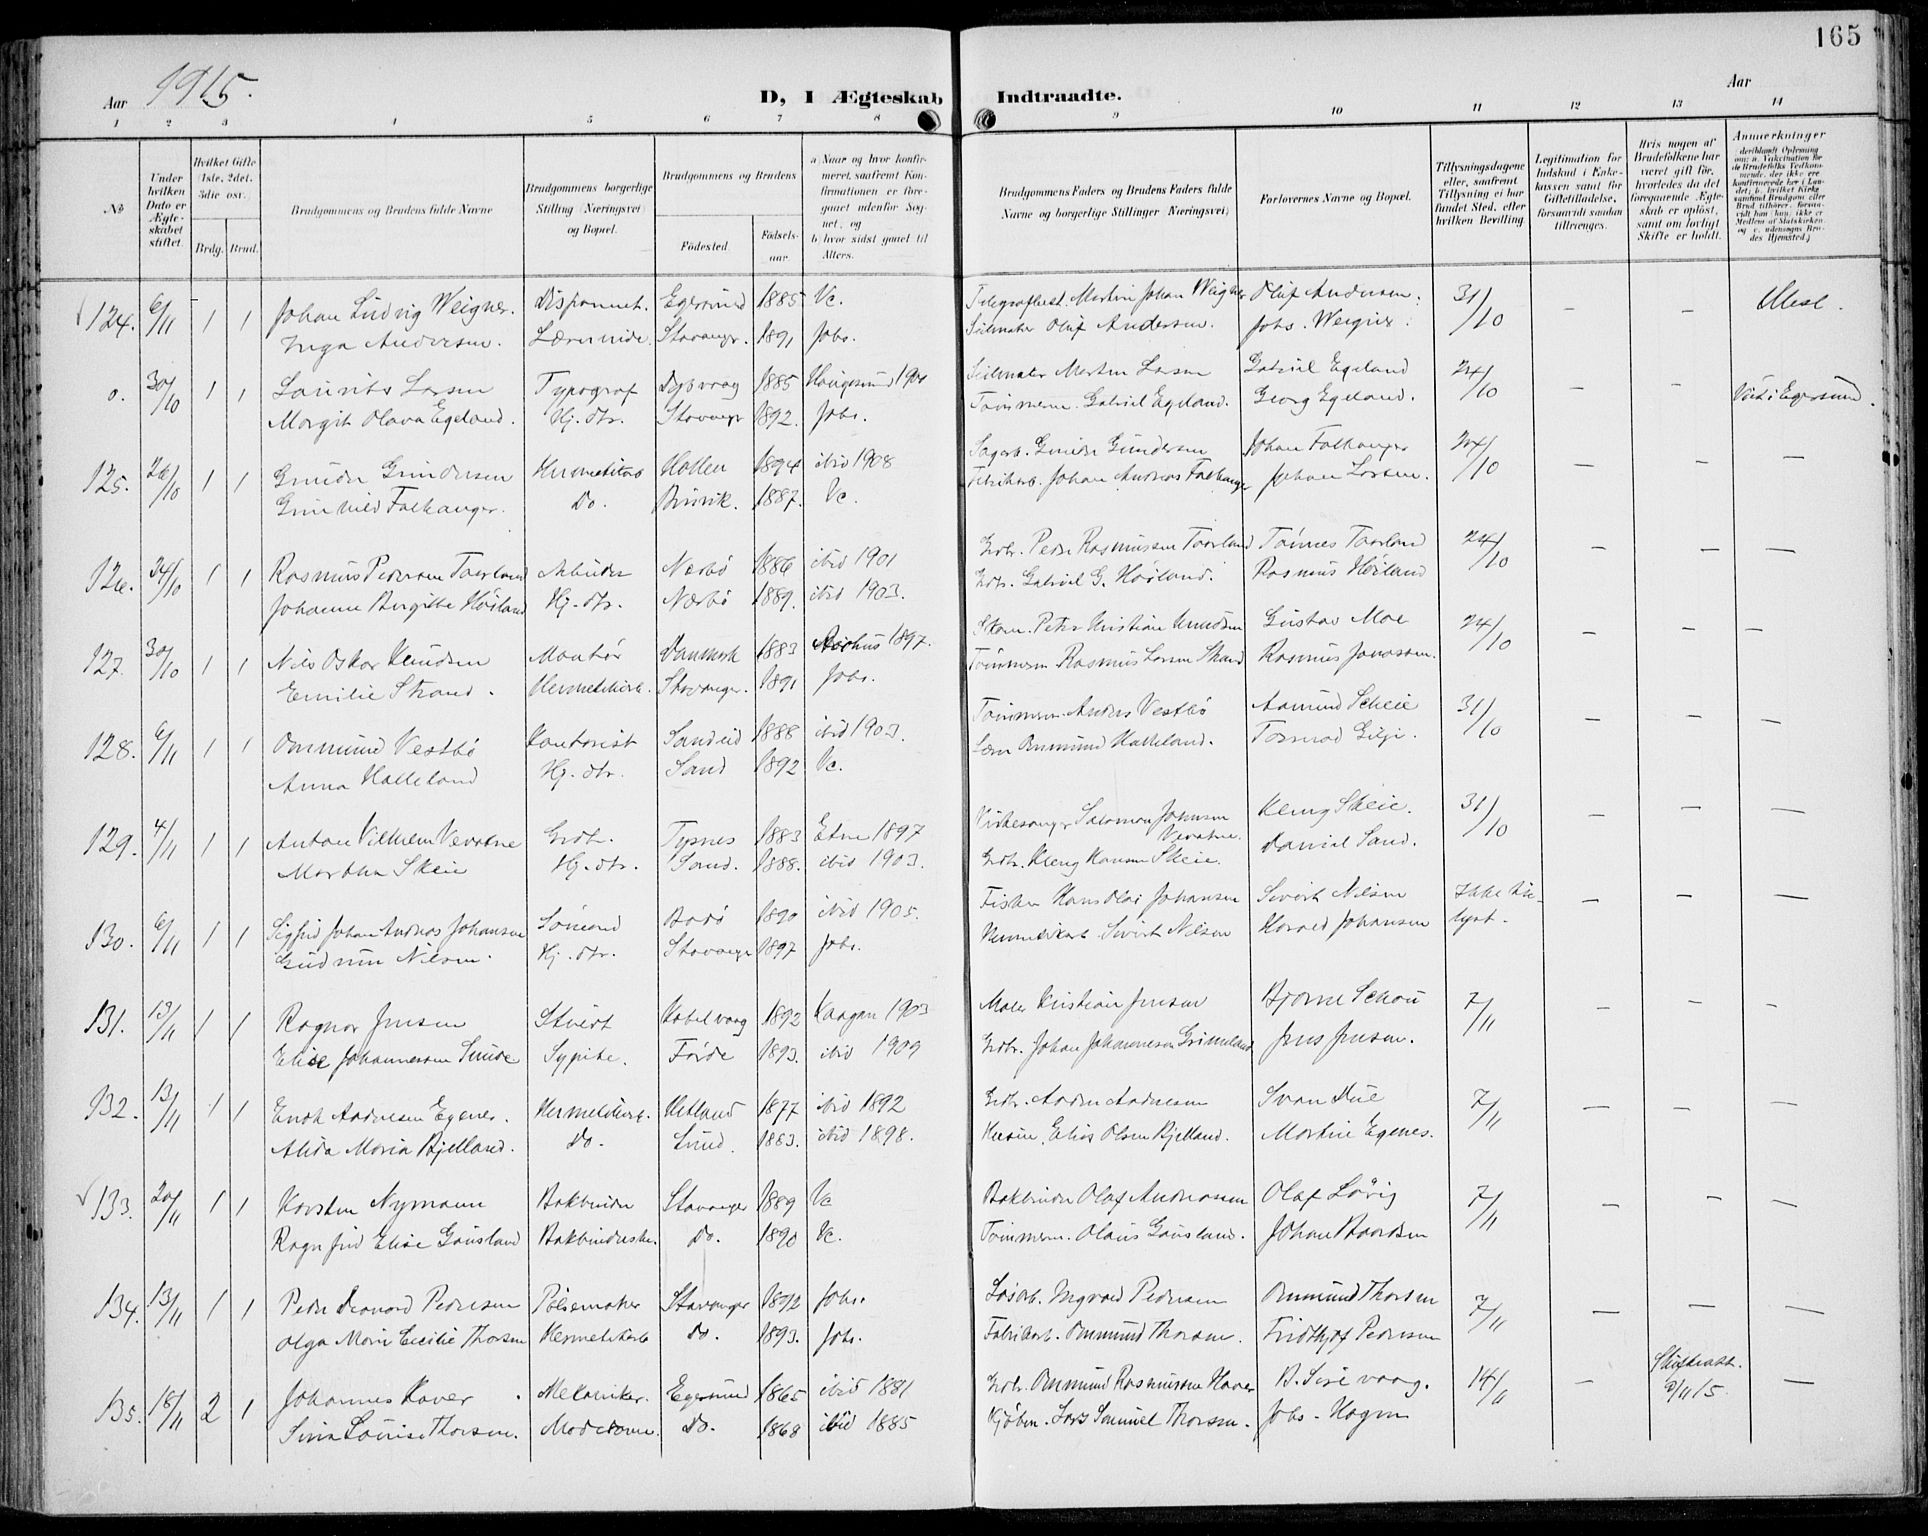 165
Aar 1915.
D, I Ægteskab Indtraadte.
Aar
1 2 3 4 5 6 7 8 9 10 11 12 13 14
No
Under hvilken Dato er Ægteskabet stiftet.
Hvilket Gifte (1ste, 2det, 3die osv.
Brdg. Brud.
Brudgommens og Brudens fulde Navne
Brudgommens borgerlige Stilling (Næringsvei) og Bopæl.
Brudgommens og Brudens
Födested. Födselsaar
a) Naar og hvor konfirmeret, saafremt Konfirmationen er foregaaet udenfor Sognet; og b) hvor sidst gaaet til Alters.
Brudgommens Faders og Brudens Faders fulde Navne og borgerlige Stillinger (Næringsvei)
Forlovernes Navne og Bopæl.
Tillysningsdagene eller, saafremt Tillysning ei har fundet Sted, efter hvilken Bevilling
Legitimation for Indskud i Enkekassen samt for Giftetilladelse, forsaavidt saadan tiltrænges.
Hvis nogen af Brudefolkene har været gift för, hvorledes da det foregaaende Ægteskab er oplöst, samt om lovligt Skifte er holdt.
Anmerkninger
124. 6/11 1 1 Johan Ludvig Weigner. Disponent. Egersund 1885 Vc. Telegrafbest. Martin Johan Weigner Oluf Andersen. 31/10 – –
Inga Andersen. Lærerinde. Stavanger. 1891 Johs. Seilmaker Oluf Andersen. Johs. Weigner.
0. 30/10 1 1 Laurits Larsen Typograf Dybvaag 1885 Haugesund 1901 Seilmaker Morten Larsen Gabriel Egeland 24/10 – – Viet i Egersund.
Margit Olava Egeland. Hj. dtr. Stavanger 1892. Johs. Tømmerm. Gabriel Egeland. Georg Egeland.
125. 26/10 1 1 Gunder Gundersen Hollen 1894 ibid 1908 Sagarb. Gunder Gundersen Johan Falkanger 24/10 – – –
Gunhild Falkanger. Do. Bruvik. 1887. Vc. Fabrikarb. Johan Andreas Falkanger Johan Larsen.
126. 24/10 1 1 Rasmus Pedersen Taarland Arbeider Nærbø 1886 ibid 1901 Grdbr. Peder Rasmussen Taarland Tønnes Taarland 24/10 – – –
Johanne Bergitte Høiland Hj. dtr. Nærbø 1889. ibid 1903. Grdbr. Gabriel G. Høiland. Rasmus Høiland
127. 30/10 1 1 Nils Oskar Knudsen Montør Danmark 1883 Aarhus 1897. Peter Kristian Knudsen Gustav Moe 24/10 – – –
Emilie Strand. Hermetikarb. Stavanger. 1891 Johs. Tømmerm Rasmus Larsen Strand Rasmus Jonassen.
128. 6/11 1 1 Ommund Vestbø Kontorist Sandeid 1888 ibid 1903. Tømmerm. Anders Vestbø Aamund Scheie 31/10 – – –
Anna Halleland Hj. dtr. Sand 1892 Vc. Ommund Halleland. Tormod Gilje.
129. 4/11 1 1 Anton Vilhelm Grdbr. Tysnes 1883 Etne 1897 Kirkesanger Salomon Johnsen Kleng Skeie. 31/10 – – –
Martha Skeie Hj. dtr. Sand. 1888. ibid 1903. Grdbr. Kleng Hansen Skeie. Daniel Sand.
130. 6/11 1 1 Sigfrid Johan Andreas Johansen Sømand Bodø 1890 ibid 1905. Fisker Hans Olai Johansen Sivert Nilsen Ikke tillyst. – – –
Gudrun Nilsen. Hj. dtr. Stavanger 1897 Johs. Hermetikarb. Sivert Nilsen Harald Johansen
131. 13/11 1 1 Ragnar Jensen Stuert Kabelvaag 1892 Vaagan 1903 Maler Kristian Jensen Bjarne Schou 7/11 – – –
Elise Johannessen Sunde Sypike. Førde 1893. ibid 1909 Grdbr. Johan Johannesen Grimeland Jens Jensen.
132. 13/11 1 1 Enok Andersen Egenes. Hermetikarb. Hetland 1877 ibid 1892 Grdbr. Svan Due 7/11 – – –
Alida Maria Bjelland. Do. Lund. 1883. ibid 1898. Elias Olsen Bjelland. Martin Egenes.
133. 20/11 1 1 Karsten Nymann Bokbinder Stavanger 1889 Vc Bokbinder Olaf Andreassen Olaf Løvig 7/11 – – –
Ragnfrid Elise Gausland Bokbinderske. Do. 1890 Vc. Tømmerm. Olaus Gausland. Johan Baardsen
134. 13/11 1 1 Peder Leonard Pedersen Pølsemaker Stavanger 1892 Johs. Løsarb. Ingvald Pedersen Ommund Thorsen 7/11 – – –
Olga Marie Cecilie Thorsen Hermetikarb Do. 1893. Johs. Fabrikarb. Ommund Thorsen. Fridthjof Pedersen
135. 18/11 2 1 Johannes Haver Mekaniker. Egersund 1865 ibid 1881 Grdbr. Ommund Rasmussen Haver B. Sirevaag. 14/11 – Skifteatt. 9/11 15. –
Sina Lovise Thorsen. Do. 1868 ibid 1885 Kjøbm. Lars Samuel Thorsen. Johs. Hagen